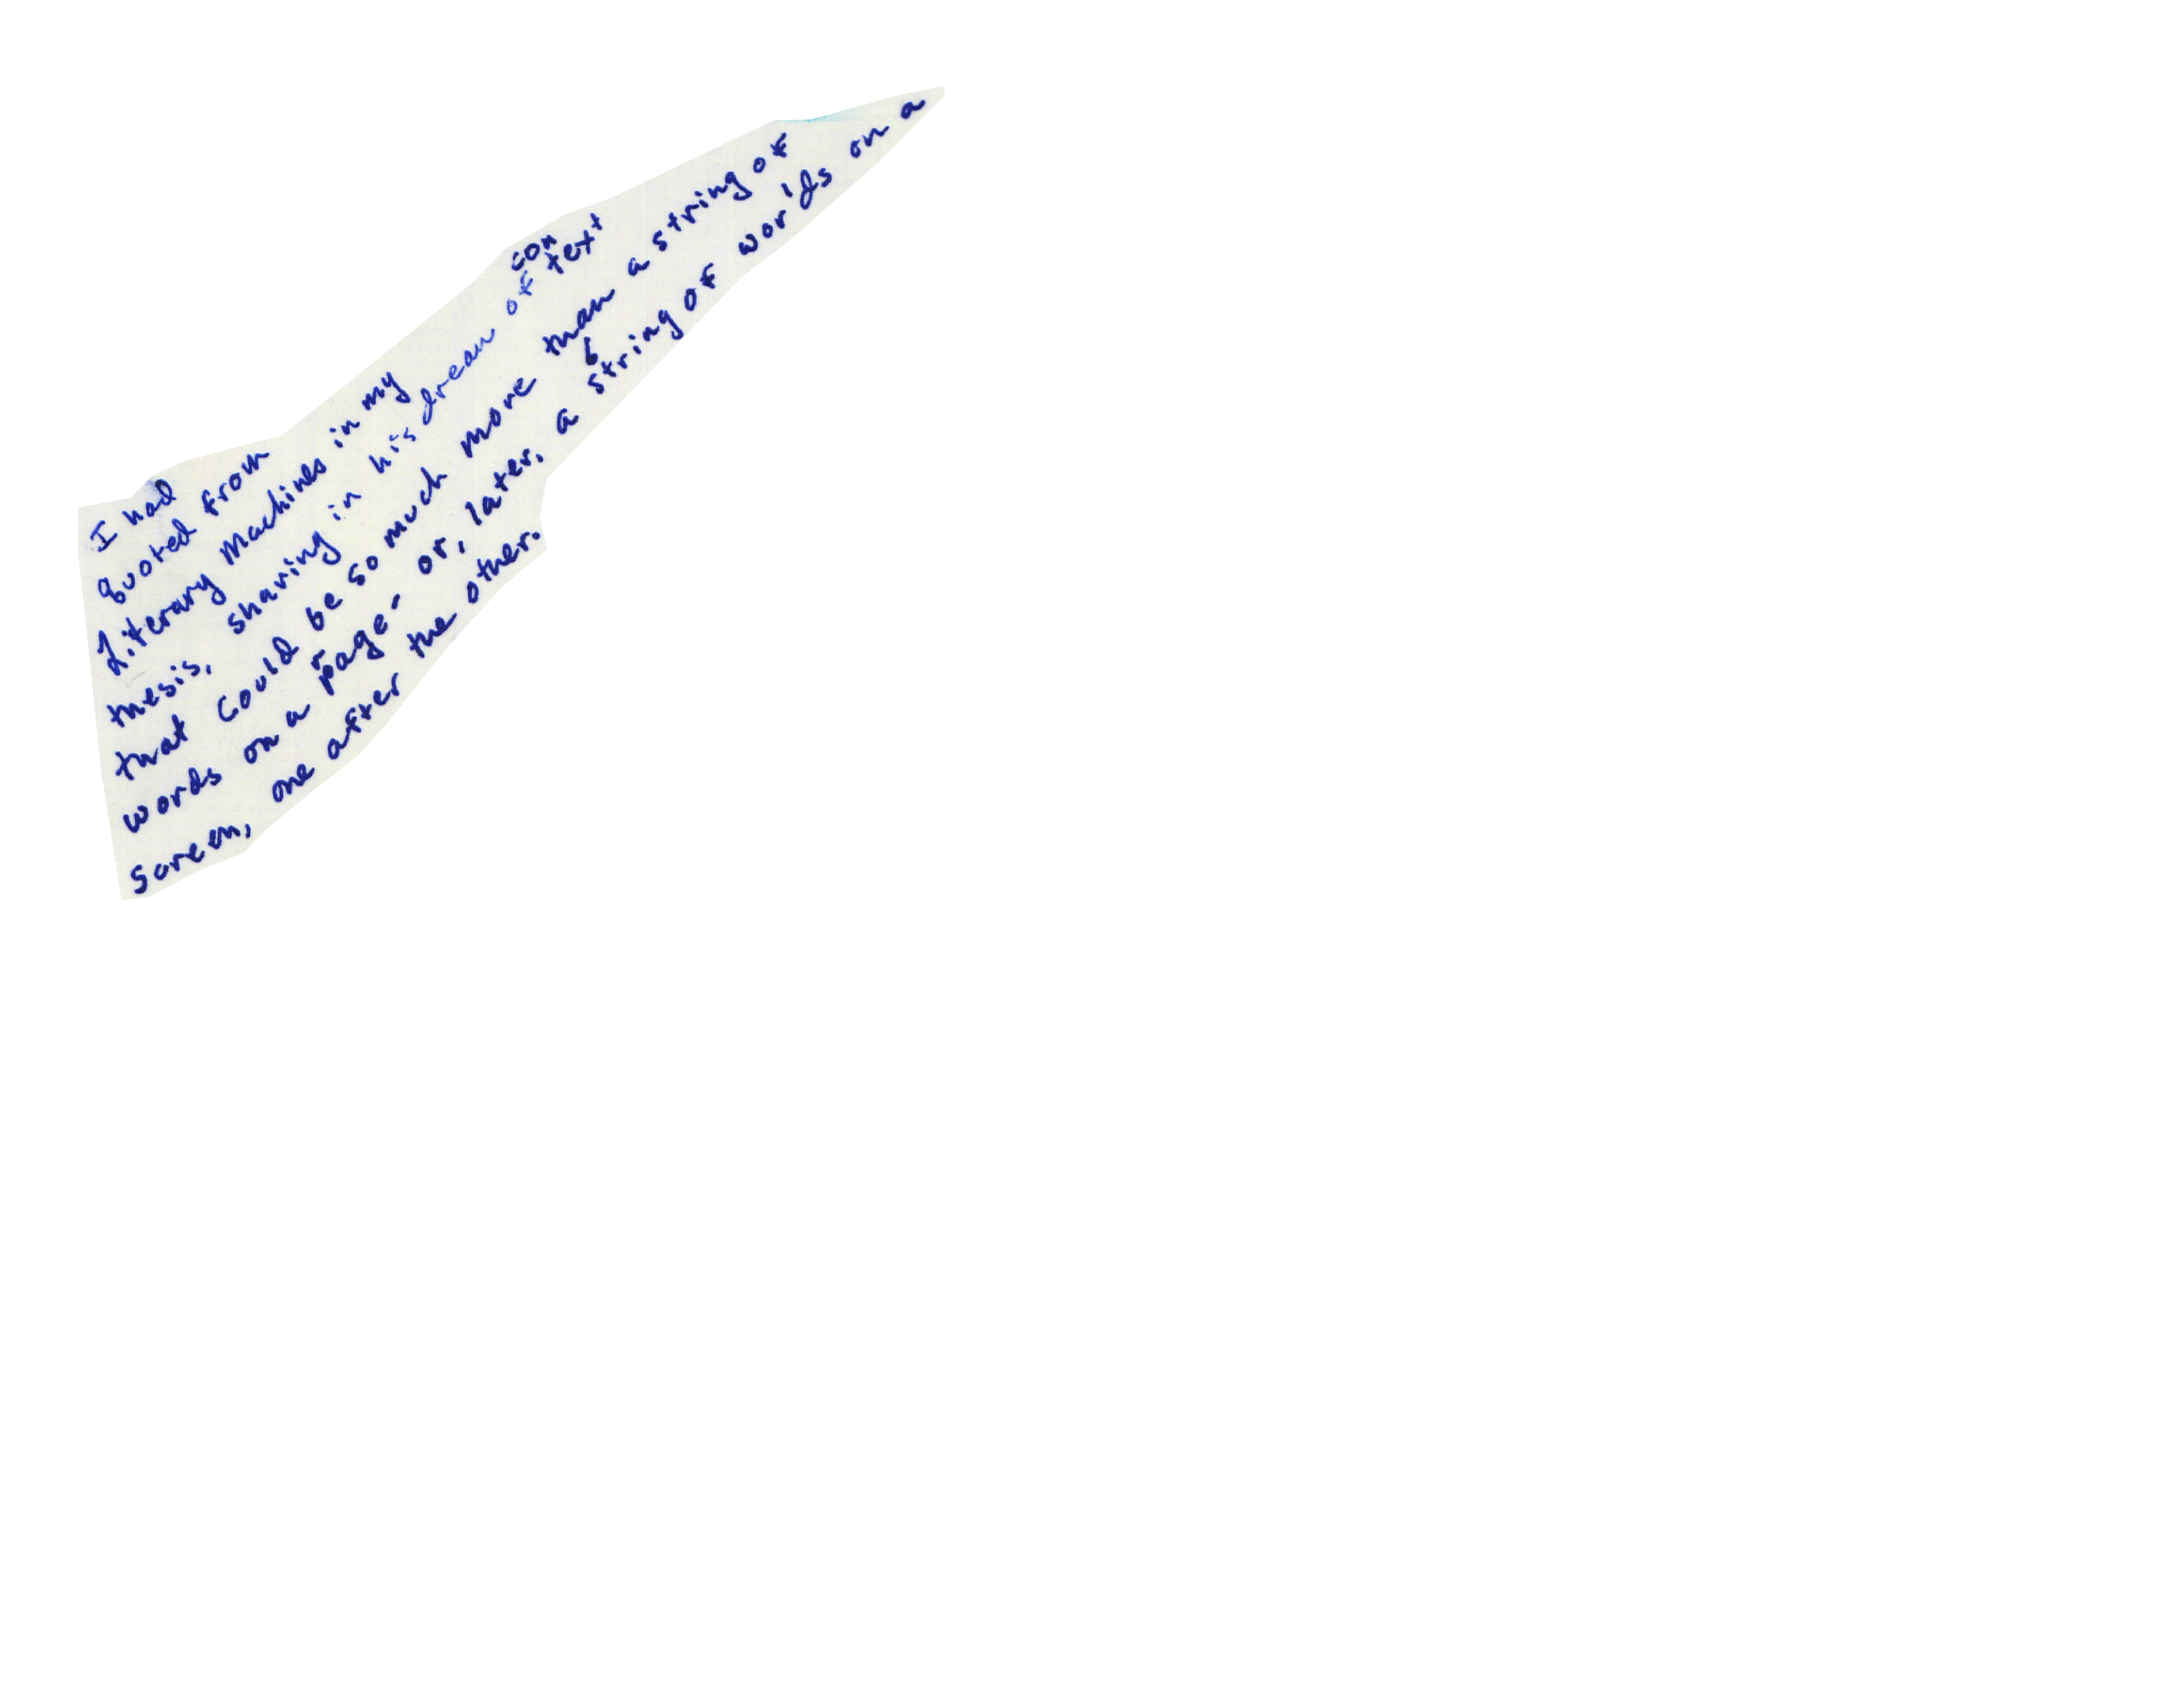 I had
quoted from
Literary Machines in my
con
thesis, sharing in his dream of text
that could be so much more than a string of
words on a page - or, later, a string of worlds on a
screen, one after the other.